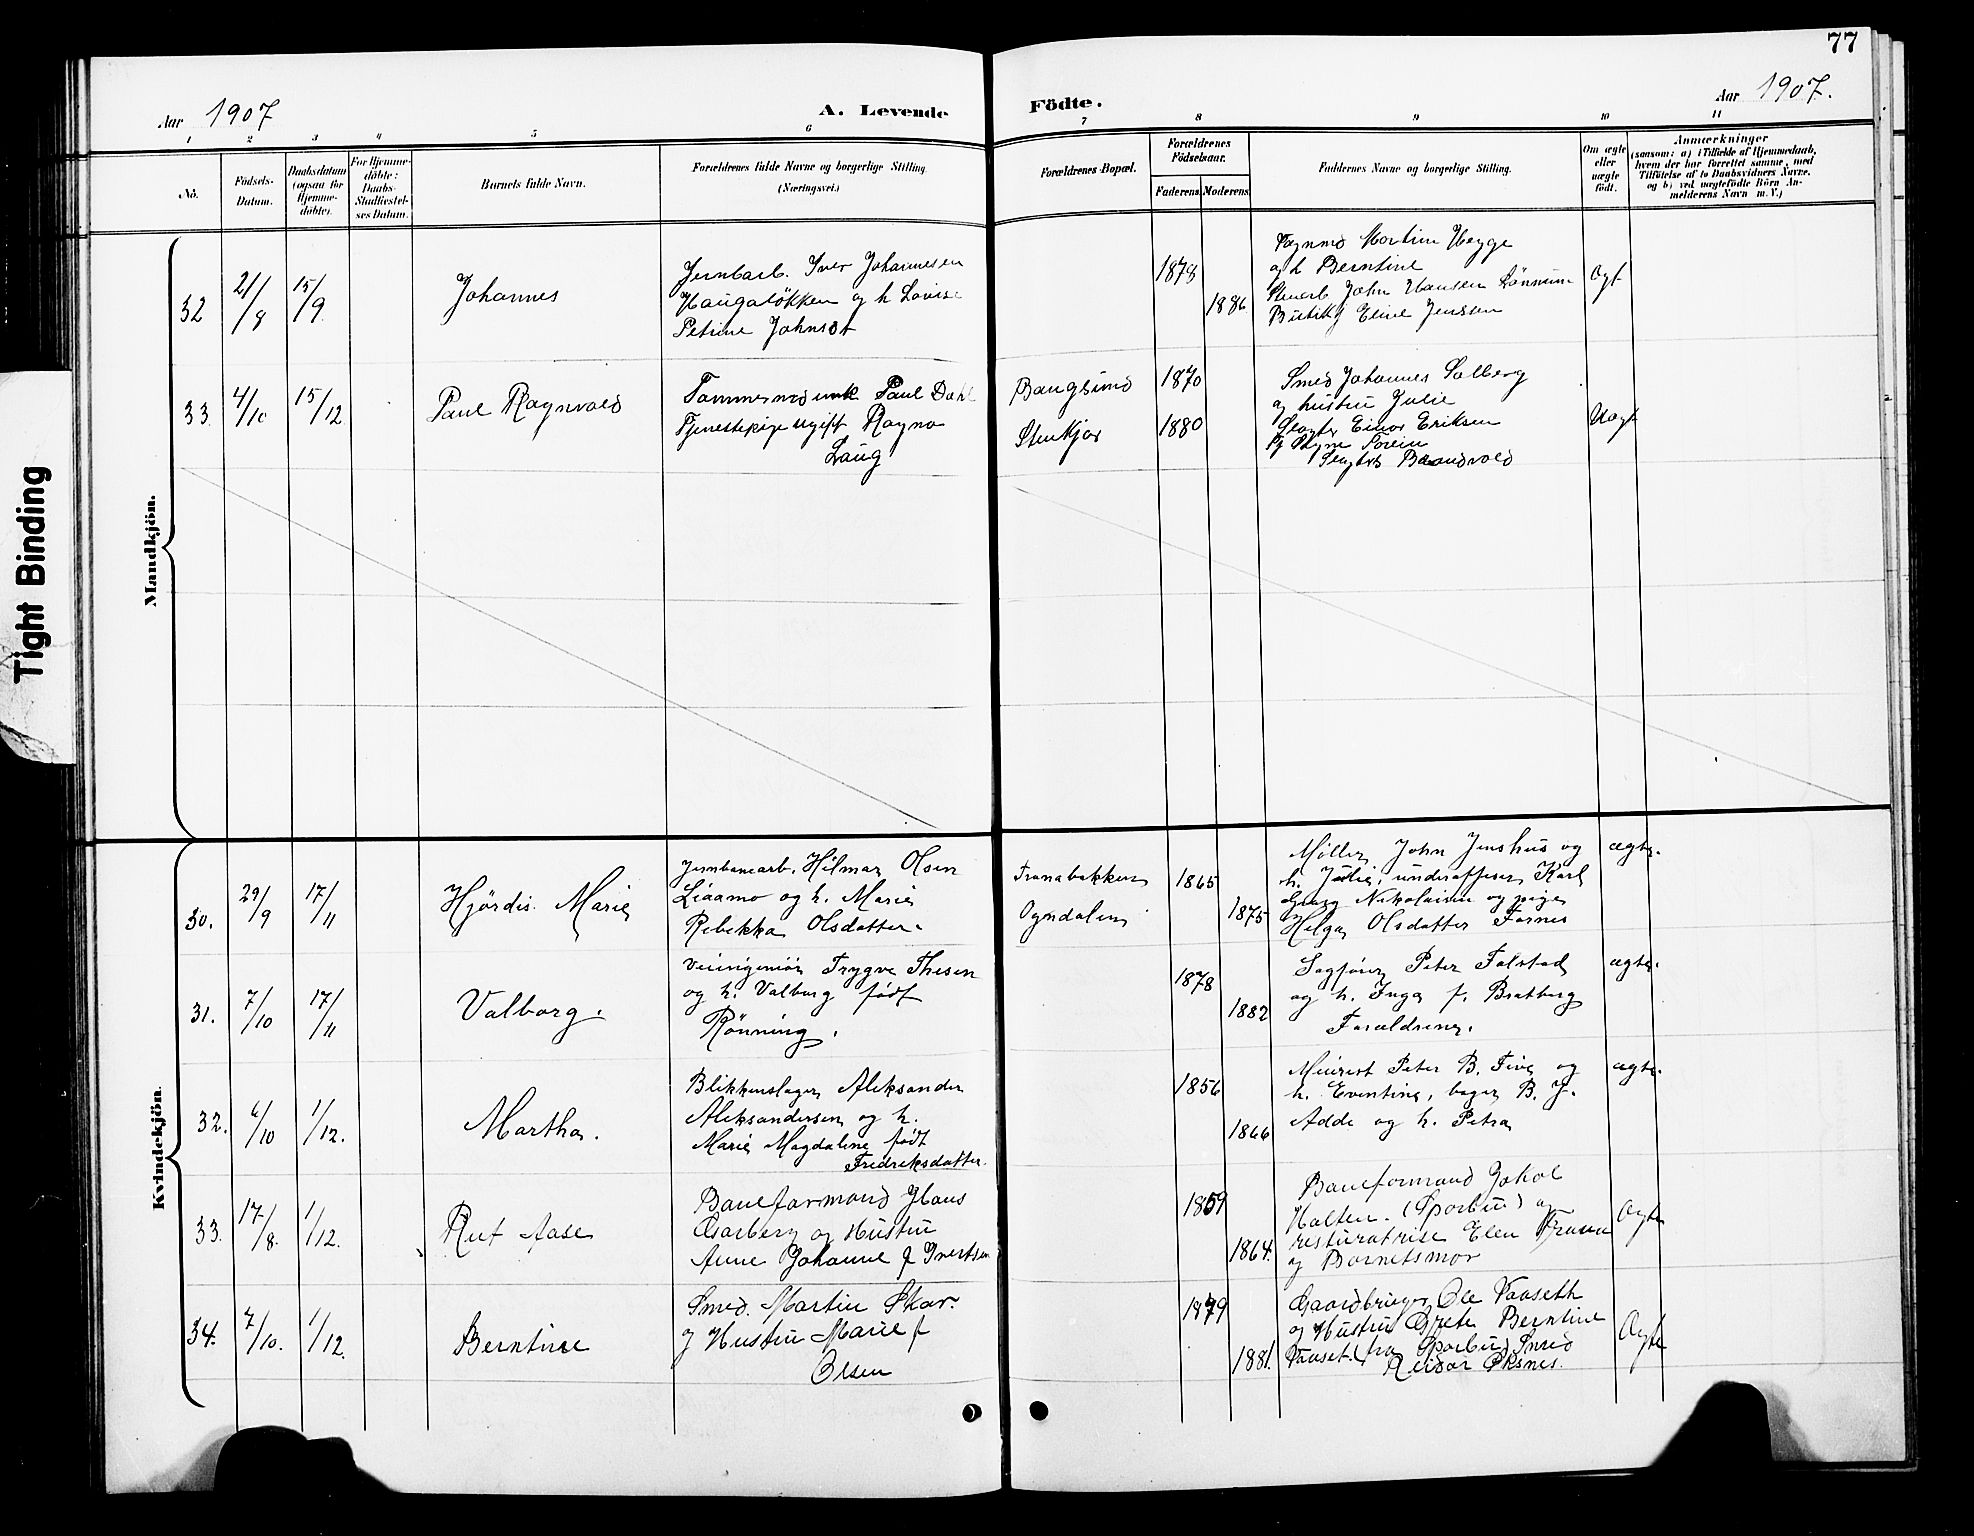 77
Aar 1907
A. Levende
Födte.
Aar 1907.
1 2 3 4 5 6 7 8 9 10 11
No.
Födsels-
Datum.
Daabsdatum
(ogsaa for
Hjemme-
döbte).
For Hjemme-
döbte:
Daabs-
Stadfæstel-
ses Datum.
Barnets fulde Navn.
Forældrenes fulde Navne og borgerlige Stilling.
(Næringsvei.)
Forældrenes Bopæl.
Forældrenes
Födselsaar.
Faderens. Moderens.
Faddernes Navne og borgerlige Stilling.
Om ægte
eller
uægte
födt.
Anmærkninger
(saasom: a) i Tilfælde af Hjemmedaab,
hvem der har forrettet samme, med
Tilföielse af to Daabsvidners Navne,
og b) ved uægtefödte Börn An-
melderens Navn m. V.)
Tight Binding
Mandkjön.
32
21/8
15/9.
Johannes
Jernbarb. Iver Johannesen
Haugaløkken og h Lovise
Petrine Johnsdt
1878
1886.
Martin Hegge
og h Berntine
John Hansen Lönnum
Eline Jenssen
Ægt
33.
4/10
15/12
Paul Ragnvald
Tømmermand Paul Dahl
Tjenestepige ugift Ragna
Laug
Bangsund
Stenkjær
1870
1880
Smed Johannes Solberg
og hustru Julie
Slagter Einar Eriksen
Brandvold
Uægt
Kvindekjön.
30.
29/9
17/11
Hjördis Marie
Jernbanearb. Hilmar Olsen
Liaamo og h. Marie
Rebekka Olsdatter.
Tranabakken
Ogndalen
1865
1875
Møller John Jenshus og
h. Julie, underofficer Karl
Georg Nikolaisen og pige
Helga Olsdatter Fornes
ægte.
31.
7/10
17/11
Valborg.
Veiingeniør Trygve Thesen
og h. Valborg født
Rönning.
1878
1882
Sagfører Peter Falstad
og h. Inga f. Bratberg
Forældrene.
ægte.
32.
6/10
1/12.
Martha.
Blikkenslager Aleksander
Aleksandersen og h.
Marie Magdalene født
Fredriksdatter.
1856
1866
Meierist Peter B. Five og
h. Eventine, bager B. J.
Adde og h. Petra
ægte.
33.
17/8.
1/12.
Rut Aase
Baneformand Hans
Garberg og Hustru
Anne Johanne f Ivertsen
1859
1864.
Baneformand Jakob
Halten. (Sparbu) og
restauratrise Elen Trana
og Barnetsmor
Ægte
34.
7/10.
1/12.
Berntine
Smed. Martin Skar.
og Hustru Marie f
Olsen
1879
1881.
Gaardbruger Ole Vaaseth
og Hustru Grete Berntine
Vaaset. (fra Sparbu) Smed
Reidar Oksnes.
Ægte